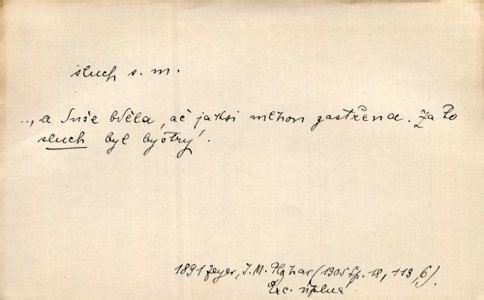 sluch s. m.
..., a duše bděla, ač jaksi mlhou zastřena. Za to
sluch byl bystrý.
1891 Zeyer, J. M. Plojhar (1905 Sp. 18, 113, 6).
Exc. úplná.